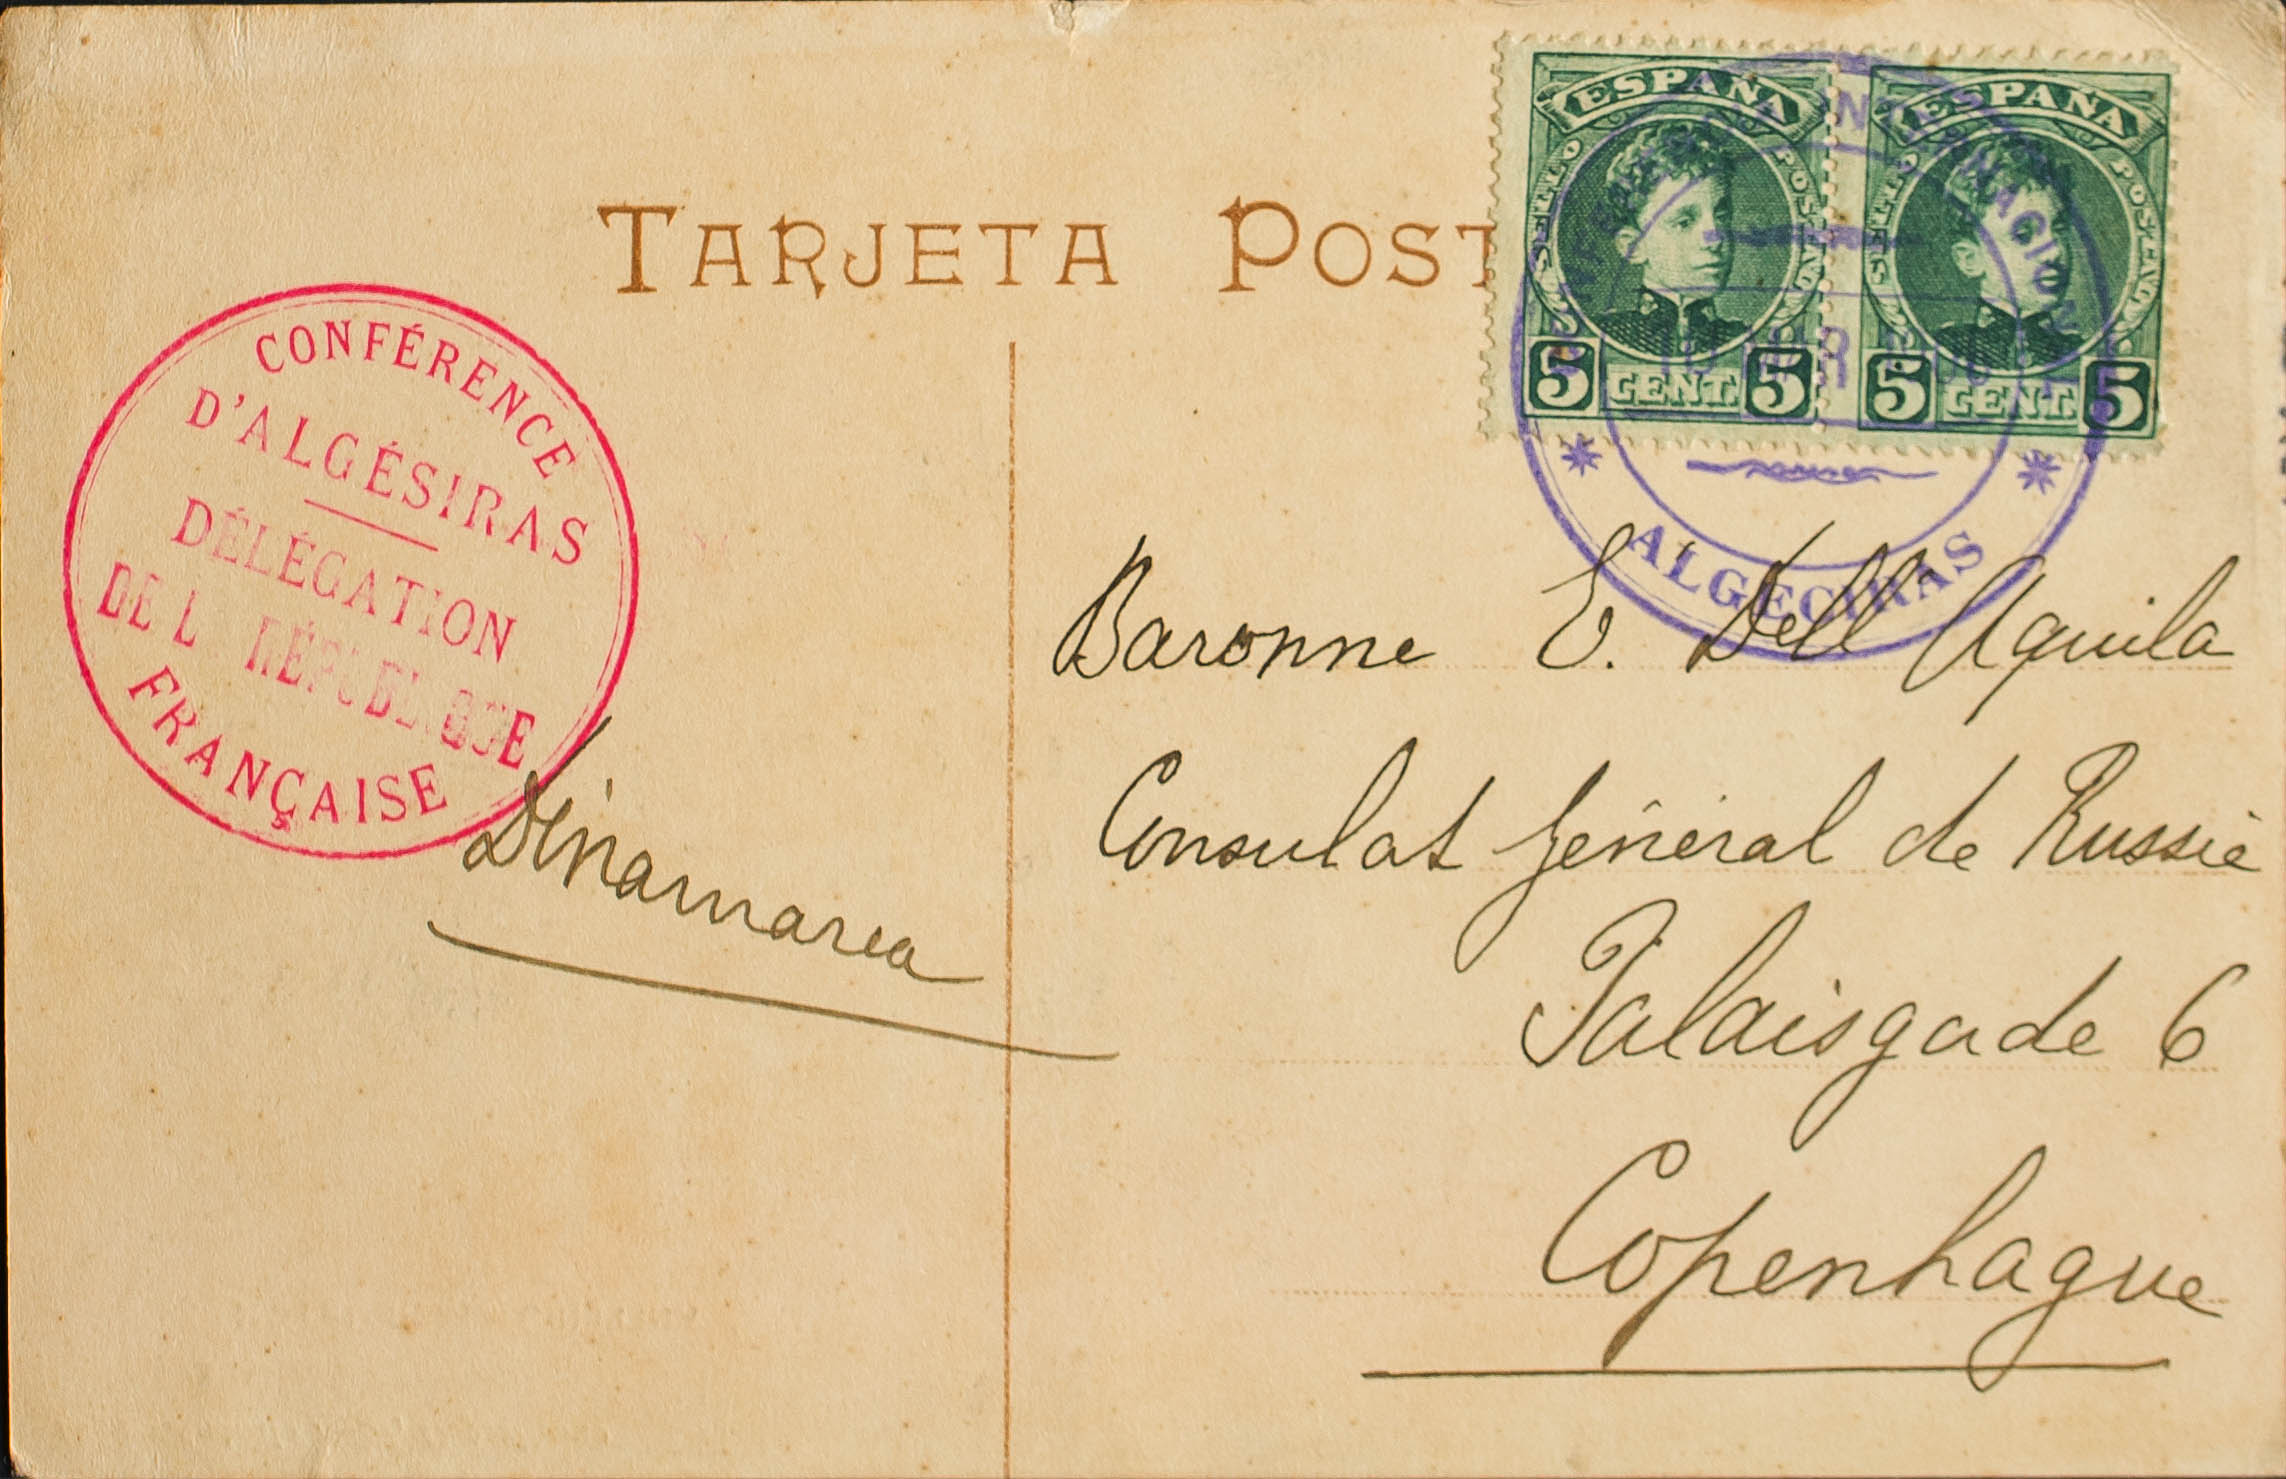 TARJETA POST
ESPAÑA
SELLO POSTAL
5 CENT. 5
ESPAÑA
SELLO POSTAL
5 CENT. 5
CONFERENCIA INTERNACIONAL
MAR
* ALGECIRAS *
CONFÉRENCE
D'ALGÉSIRAS
DÉLÉGATION
DE L RÉPUBLIQUE
FRANÇAISE
Dinamarca
Baronne E. Dell Aquila
Consulat Général de Russie
Palaisgade 6
Copenhague